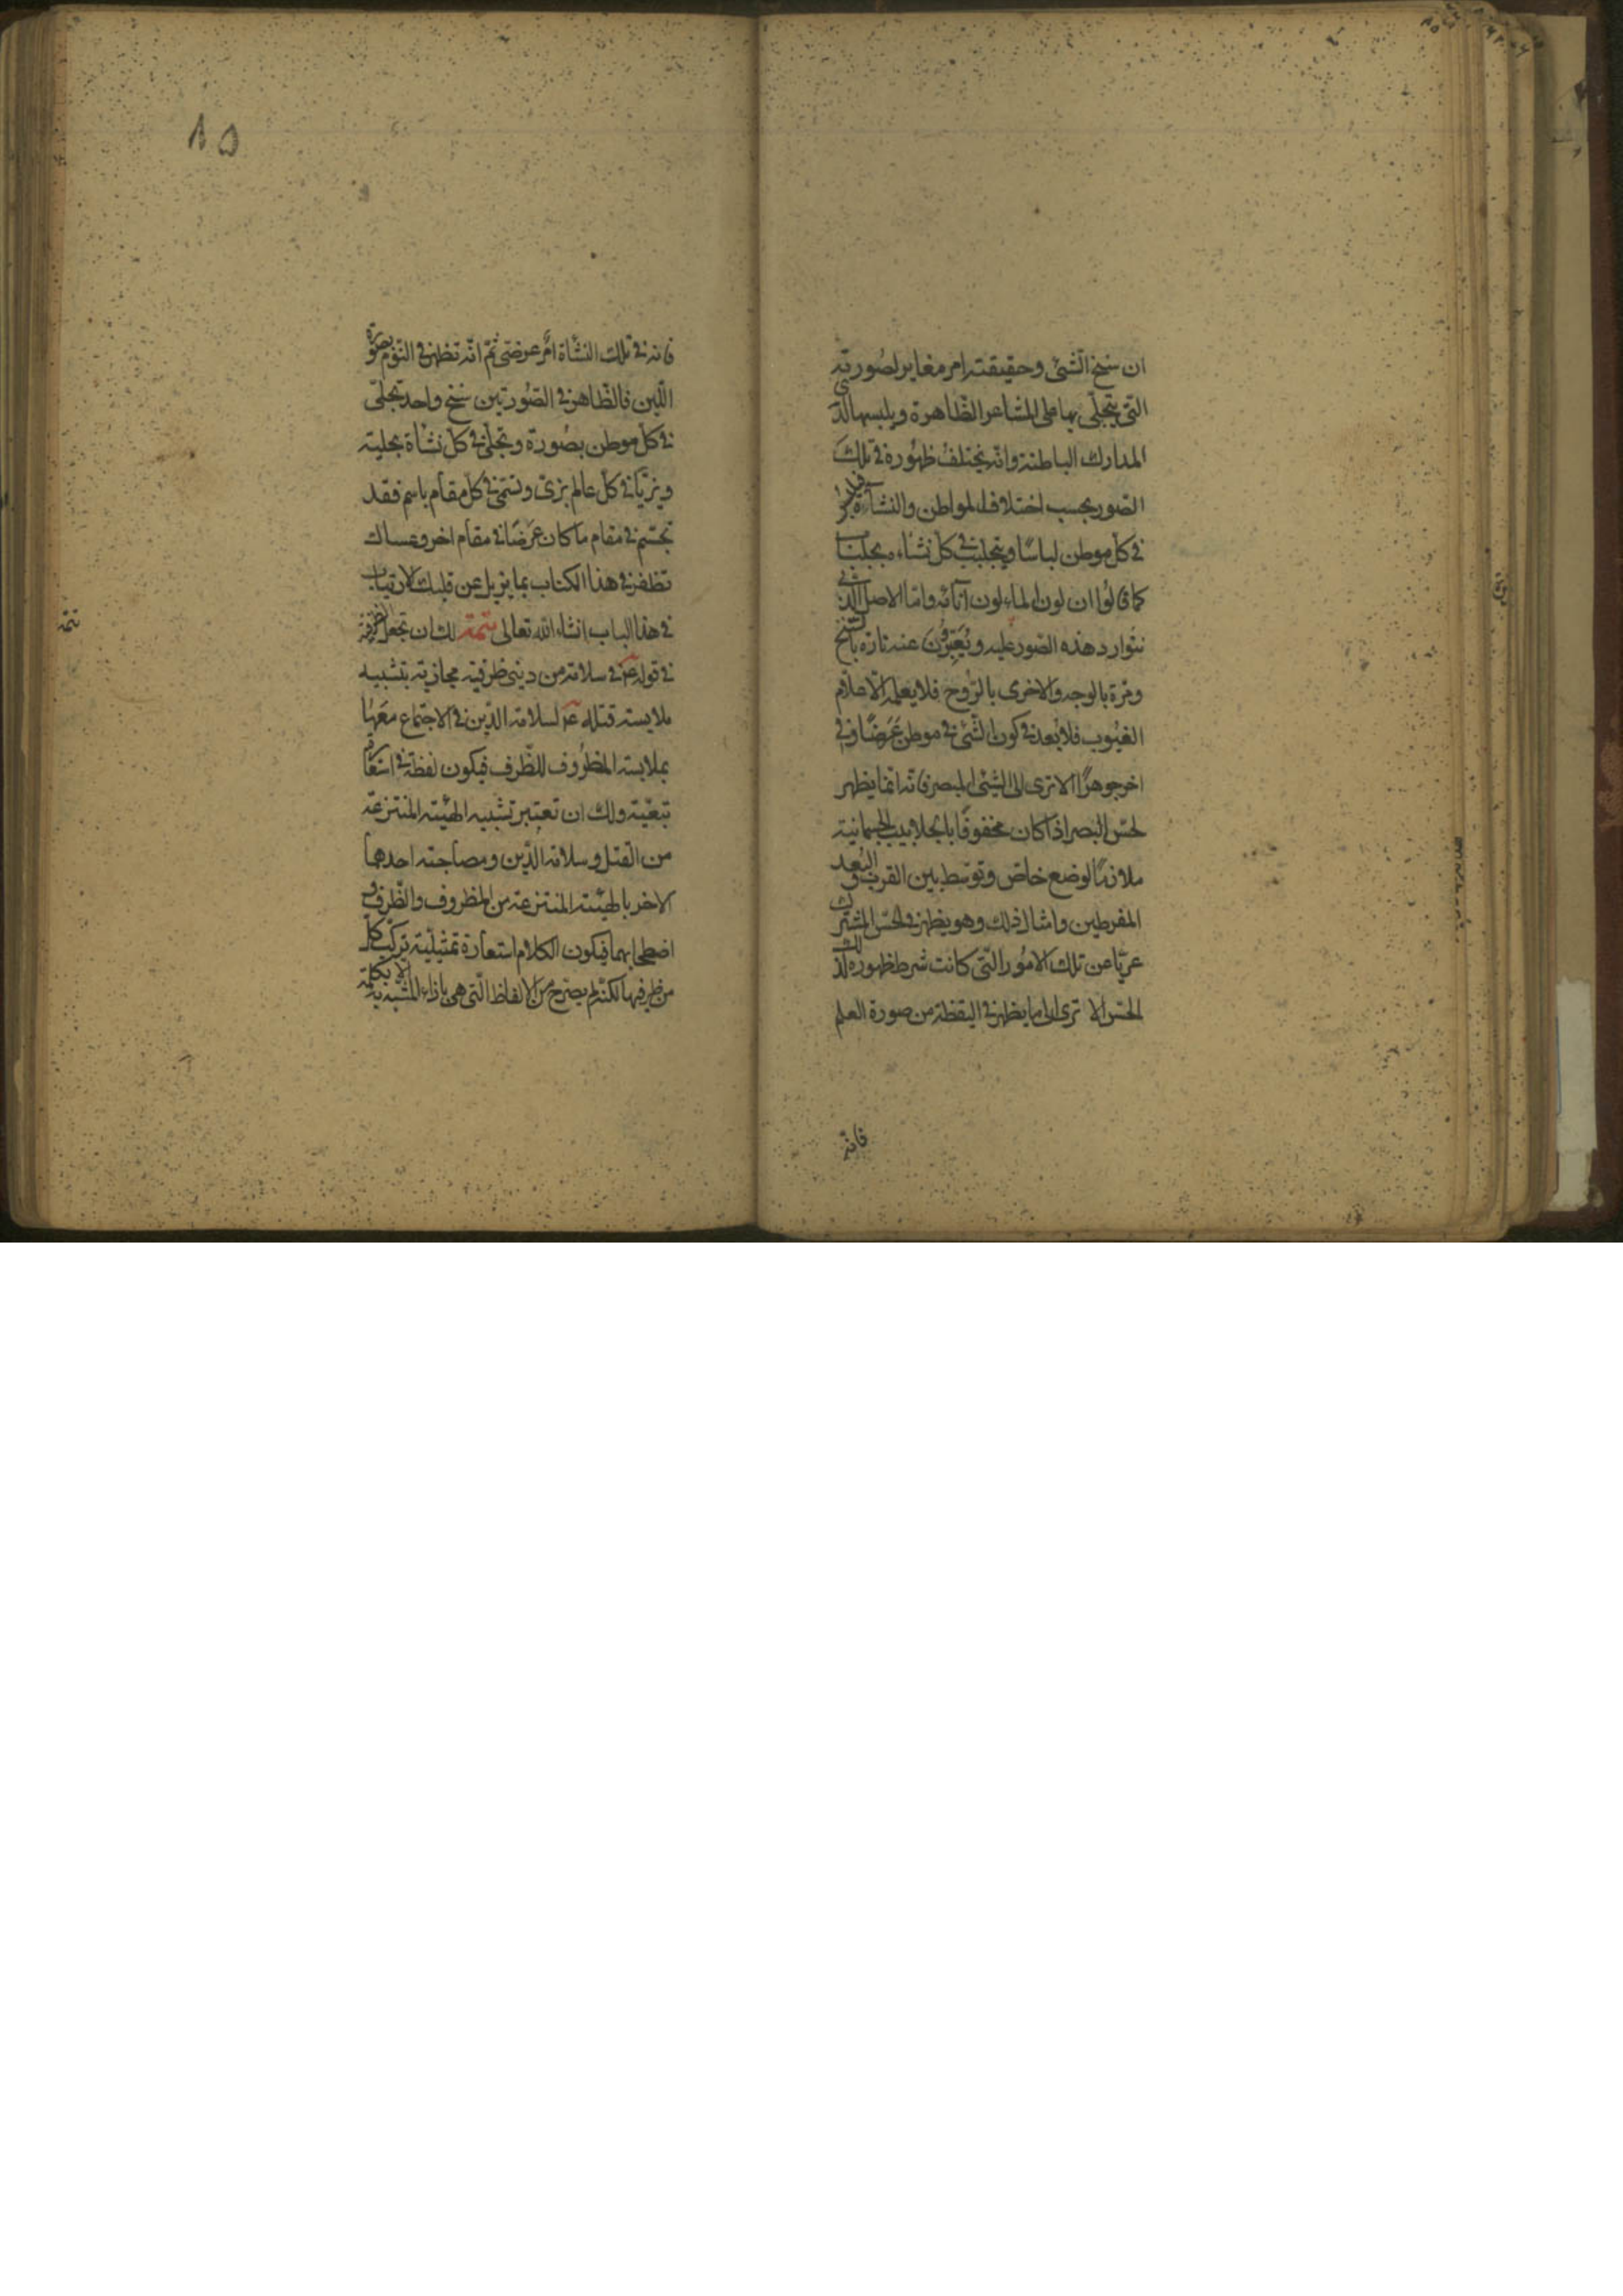 ان سنخ الشئ وحقيقته امر مغاير لصورته
التى يتجلى بها على المشاعر الظاهرة ويلبسها لدى
المدارك الباطنة وانه يختلف ظهوره فى تلك
الصور بحسب اختلاف المواطن والنشاآة فيلبس
فى كل موطن لباسًا ويتجلبب فى كل نشاء بجلباب
كما قالوا ان لون الماء لون آنائه واما الاصل الذى
تتوارد هذه الصور عليه ويُعَبّرون عنه تارة بالسنخ
ومرة بالوجه والاخرى بالروح فلا يعلمه الا علام
الغيوب فلا بُعد فى كون الشئ فى موطن عَرَضًا وفى
اخر جوهرًا الا ترى الى الشئ المبصر فانه انما يظهر
لحس البصر اذا كان محفوفًا بالجلابيب الجسمانية
ملازمًا لوضع خاص وتوسط بين القرب والبُعد
المفرطين وامثال ذلك وهو يظهر فى الحس المشترك
عريًا عن تلك الامور التى كانت شرط ظهوره لذلك
الحس الا ترى الى ما يظهر فى اليقظة من صورة العلم
فانه
١٥
فانه فى تلك النشاة امر عرضى ثم انه تظهر فى النوم بصورة
اللبن فالظاهر فى الصورتين سنخ واحد تجلى
فى كل موطن بصورة وتجلى فى كل نشاة بحلية
وتزيا فى كل عالم بزى وتسمى فى كل مقام باسم فقد
تجسم فى مقام ما كان عَرَضًا فى مقام اخر وعساك
تظفر فى هذا الكتاب بما يزيل عن قلبك الارتياب
فى هذا الباب انشاء الله تعالى تتمة لك ان تجعل الظرفية
فى قوله ع فى سلامة من دينى ظرفية مجازية بتشبيه
ملابسة قتله ع لسلامة الدين فى الاجتماع معها
بملابسة المظروف للظرف فيكون لفظة فى استعارة
تبعية ولك ان تعتبر تشبيه الهيئة المنتزعة
من القتل وسلامة الدين ومصاحبة احدهما
الاخر بالهيئة المنتزعة من المظروف والظرف و
اصطحابهما فيكون الكلام استعارة تمثيلية تركب كل
من طرفيها لكنه لم يصرح من الالفاظ التى هى بازاء المشبه به الا بكلمة
تتمة